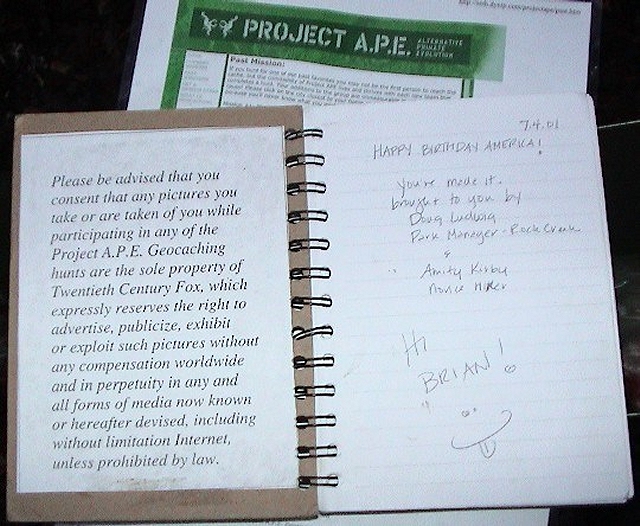 PROJECT A.P.E. ALTERNATIVE
PRIMATE
EVOLUTION
Past Mission:
Please be advised that you
consent that any pictures you
take or are taken of you while
participating in any of the
Project A.P.E. Geocaching
hunts are the sole property of
Twentieth Century Fox, which
expressly reserves the right to
advertise, publicize, exhibit
or exploit such pictures without
any compensation worldwide
and in perpetuity in any and
all forms of media now known
or hereafter devised, including
without limitation Internet,
unless prohibited by law.
7.4.01
HAPPY BIRTHDAY AMERICA!
you've made it.
brought to you by
Doug Ludwig
Park Manager - Rock Creek
&
Amity Kirby
Novice Hider
Hi
BRIAN!